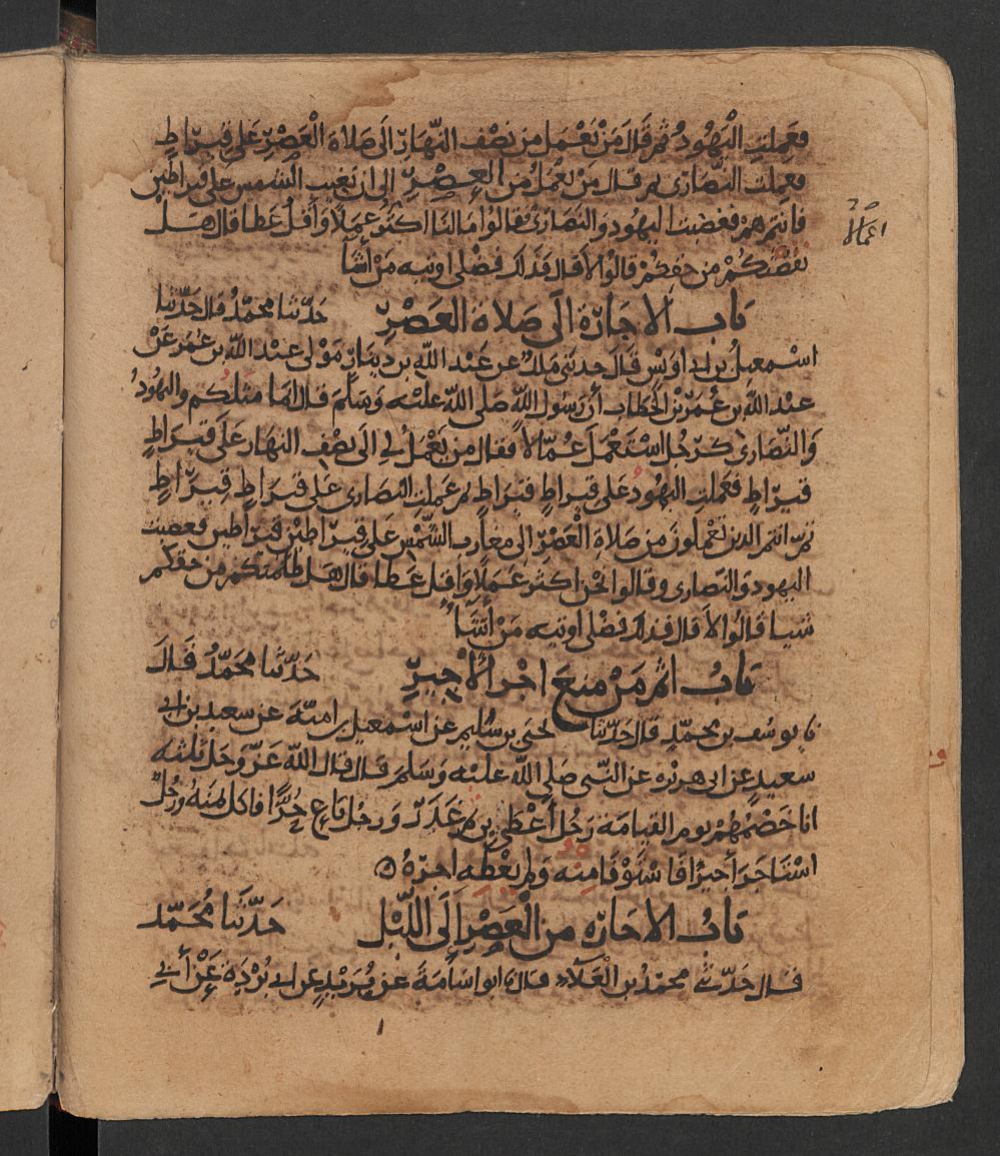 فعملت اليهود ثم قال من يعمل من نصف النهار الى صلاة العصر على قيراط
فعملت النصارى ثم قال من يعمل من العصر الى ان تغيب الشمس على قيراطين
فانتم هم فغضبت اليهود والنصارى فقالوا ما لنا اكثر عملا واقل عطا قال هل
نقصتكم من حقكم قالوا لا قال فذلك فضلى اوتيه من اشا
باب الاجارة الى صلاة العصر حدثنا محمد قال حدثنا
اسمعيل بن ابى اويس قال حدثنى ملك عن عبد الله بن دينار مولى عبد الله بن عمر عن
عبد الله بن عمر بن الخطاب أن رسول الله صلى الله عليه وسلم قال انما مثلكم واليهود
والنصارى كرجل استعمل عمالا فقال من يعمل لى الى نصف النهار على قيراط
قيراط فعملت اليهود على قيراط قيراط ثم عملت النصارى على قيراط قيراط
ثم انتم الذين تعملون من صلاة العصر الى مغارب الشمس على قيراطين قيراطين فغضبت
اليهود والنصارى وقالوا نحن اكثر عملا واقل عطا قال هل ظلمتكم من حقكم
شيا قالوا لا قال فذلك فضلى اوتيه من أشا
باب اثم من منع اجر الاجير حدثنا محمد قال
نا يوسف بن محمد قال حدثنا يحيى بن سليم عن اسمعيل بن امية عن سعيد بن ابى
سعيد عن ابى هريرة عن النبى صلى الله عليه وسلم قال قال الله عز وجل ثلثة
انا خصمهم يوم القيامة رجل أعطى بى ثم غدر ورجل باع حرا فاكل ثمنه ورجل
استاجر أجيرا فاستوفا منه ولم يعطه اجره
باب الاجارة من العصر الى الليل حدثنا محمد
قال حدثنى محمد بن العلاء قال نا ابو اسامة عن بريد عن ابى بردة عن أبى